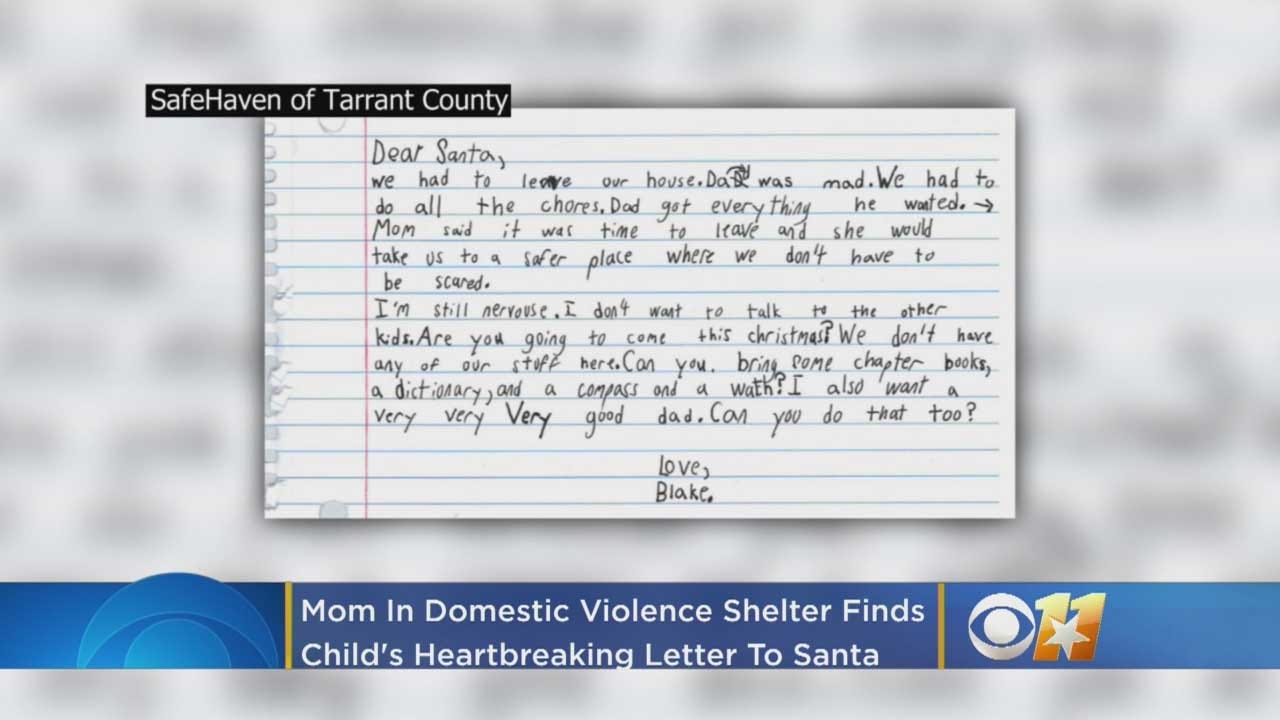 SafeHaven of Tarrant County
Dear Santa,
we had to leave our house. Dad was mad. We had to
do all the chores. Dad got everything he wanted. →
Mom said it was time to leave and she would
take us to a safer place where we don't have to
be scared.
I'm still nervouse. I don't want to talk to the other
kids. Are you going to come this christmas? We don't have
any of our stuff here. Can you. bring some chapter books,
a dictionary, and a compass and a wath? I also want a
very very Very good dad. Can you do that too?
Love,
Blake.
Mom In Domestic Violence Shelter Finds
Child's Heartbreaking Letter To Santa
11